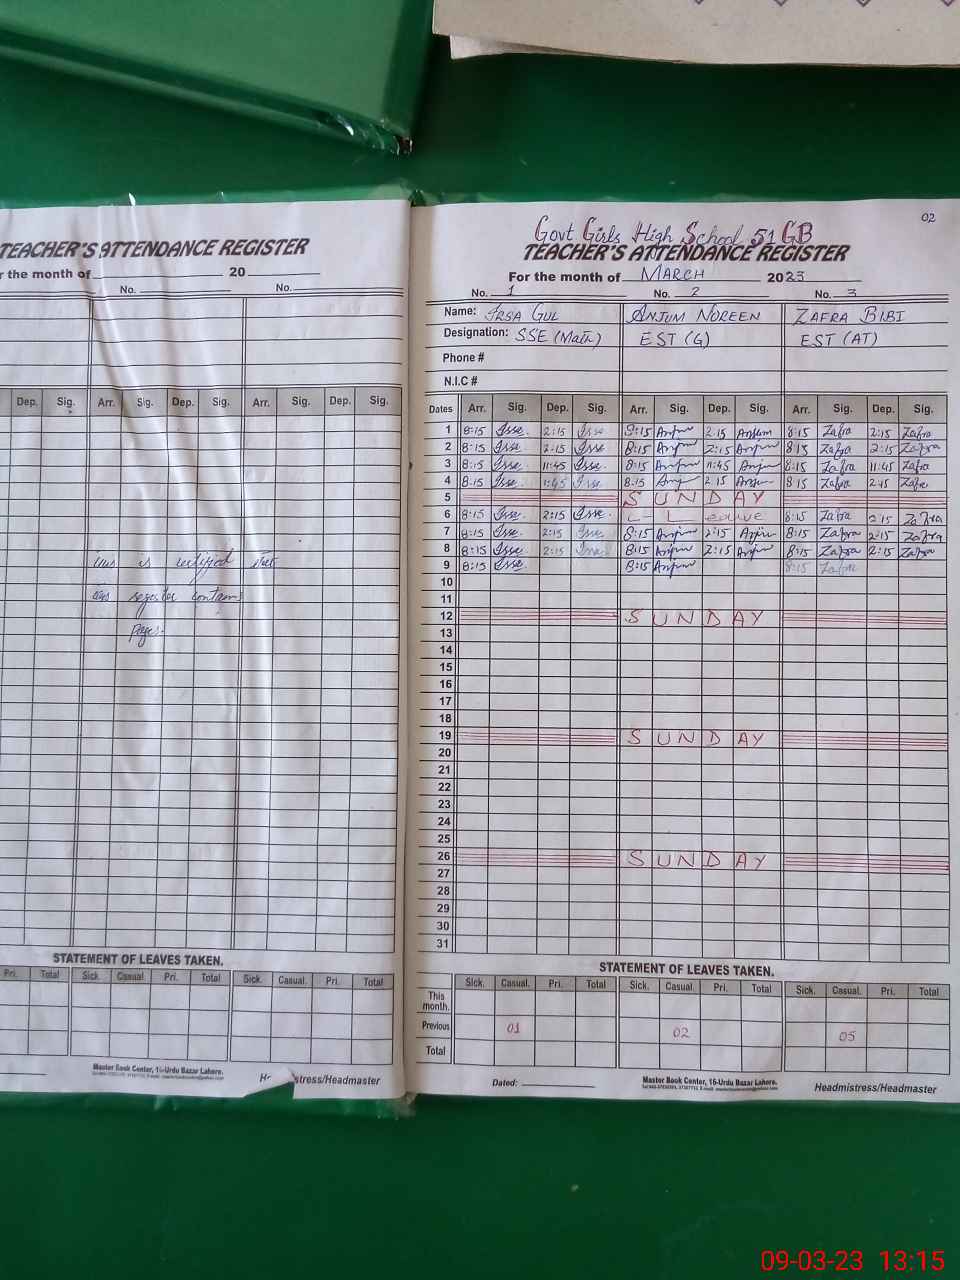 TEACHER'S ATTENDANCE REGISTER
r the month of 20
No. No.
Dep. Sig. Arr. Sig. Dep. Sig. Arr. Sig. Dep. Sig.
is certified that
register contains
pages.
STATEMENT OF LEAVES TAKEN.
Pri. Total Sick. Casual. Pri. Total Sick. Casual. Pri. Total
Master Book Center, 16-Urdu Bazar Lahore.
stress/Headmaster
02
Govt Girls High School 51 GB
TEACHER'S ATTENDANCE REGISTER
For the month of MARCH 2023
No. 1 No. 2 No. 3
Name: IRSA GUL ANJUM NOREEN ZAFRA BIBI
Designation: SSE (Math) EST (G) EST (AT)
Phone #
N.I.C #
Dates Arr. Sig. Dep. Sig. Arr. Sig. Dep. Sig. Arr. Sig. Dep. Sig.
1 8:15 2:15 8:15 Anjum 2:15 Anjum 8:15 Zafra 2:15 Zafra
2 8:15 2:15 8:15 Anjum 2:15 Anjum 8:15 Zafra 2:15 Zafra
3 8:15 11:45 8:15 Anjum 11:45 Anjum 8:15 Zafra 11:45 Zafra
4 8:15 1:45 8:15 Anjum 2:15 Anjum 8:15 Zafra 2:15 Zafra
5 SUNDAY
6 8:15 2:15 L L eave 8:15 Zafra 2:15 Zafra
7 8:15 2:15 8:15 Anjum 2:15 Anjum 8:15 Zafra 2:15 Zafra
8 8:15 2:15 8:15 Anjum 2:15 Anjum 8:15 Zafra 2:15 Zafra
9 8:15 8:15 Anjum 8:15 Zafra
10
11
12 SUNDAY
13
14
15
16
17
18
19 SUNDAY
20
21
22
23
24
25
26 SUNDAY
27
28
29
30
31
STATEMENT OF LEAVES TAKEN.
Sick. Casual. Pri. Total Sick. Casual. Pri. Total Sick. Casual. Pri. Total
This
month.
Previous 01 02 05
Total
Dated:
Master Book Center, 16-Urdu Bazar Lahore.
Headmistress/Headmaster
09-03-23 13:15